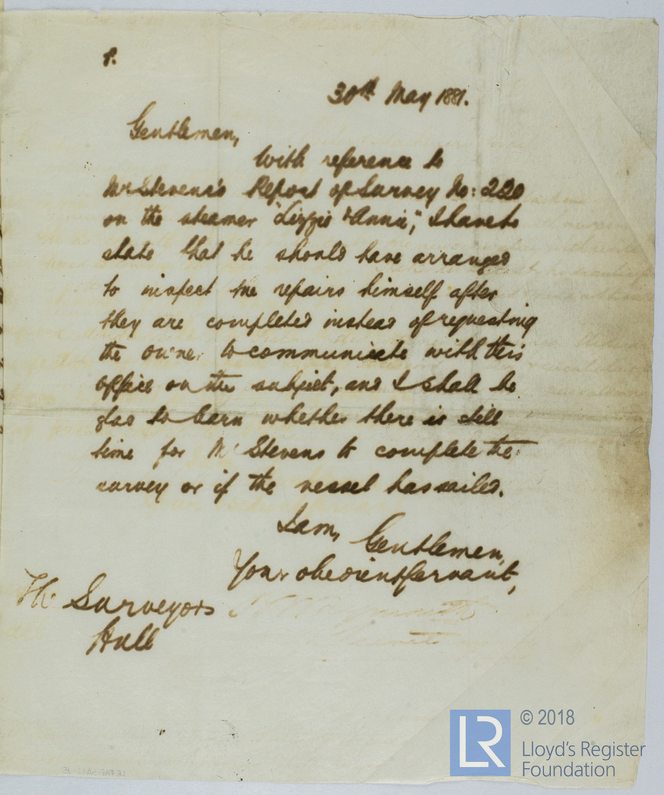 P.
30th May 1881.
Gentlemen,
With reference to
Mr Stevens's Report of Survey No: 220
on the steamer "Lizzie & Annie," I have to
state that he should have arranged
to inspect the repairs himself after
they are completed instead of requesting
the owner to communicate with this
office on the subject, and I shall be
glad to learn whether there is still
time for Mr Stevens to complete the
survey or if the vessel has sailed.
I am,
Gentlemen,
Your obedient Servant,
The Surveyors
Hull
LR
© 2018
Lloyd's Register
Foundation